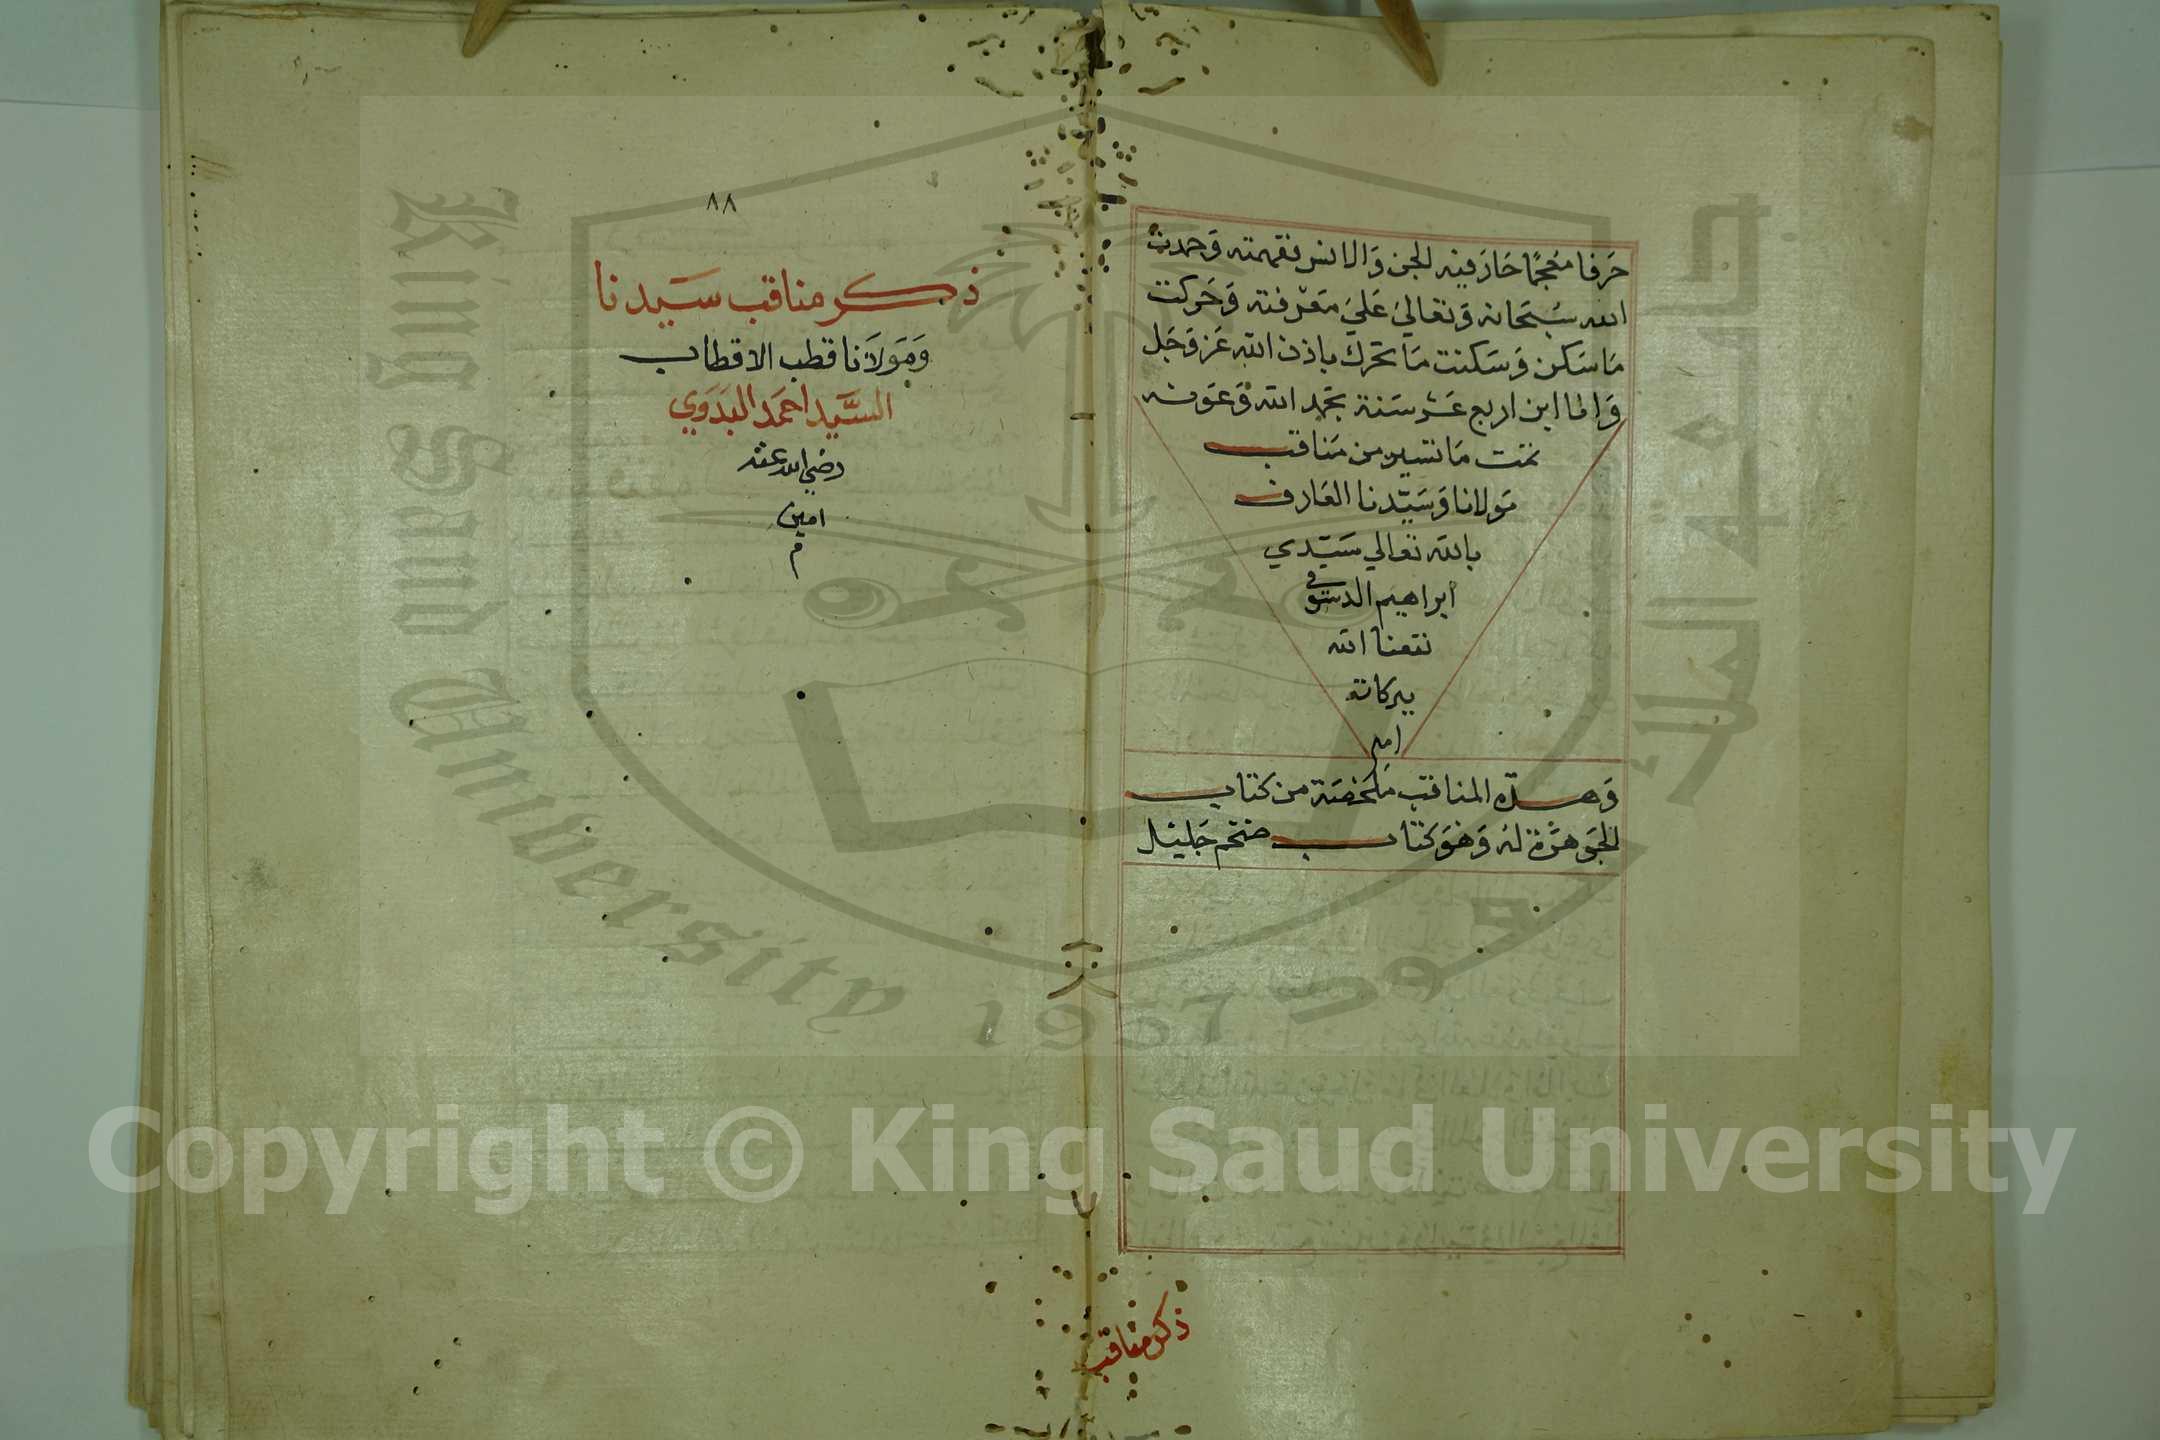 حَرفا معجمًا حَارَ فيه الجن وَالانس ففهمته وَحمدت
الله سُبحَانه وَتعَاليَ عَليَ مَعْرفته وَحَركت
مَا سَكن وَسَكنت مَا تحَرك باذن الله عَز وَجَل
وَانا ابن اربع عَشر سَنة بحَمد الله وَعَونه
تمت مَا تيسر من مَناقب
مَولانا وَسَيّدنا العَارف
بالله تعالي سَيّدي
ابراهيم الدسُوقي
نفعنا الله
ببركاته
امين
وَهَذه المناقب مَلخصَة من كتاب
الجَوهَرَة له وَهوَ كتاب ضخم جَليل
ذكر مناقب
٨٨
ذكر مناقب سَيدنا
وَمَولاَنا قطب الاقطاب
السَّيد احمَد البَدَوي
رضي الله عنه
امين
م
King Saud University
1957
Copyright © King Saud University